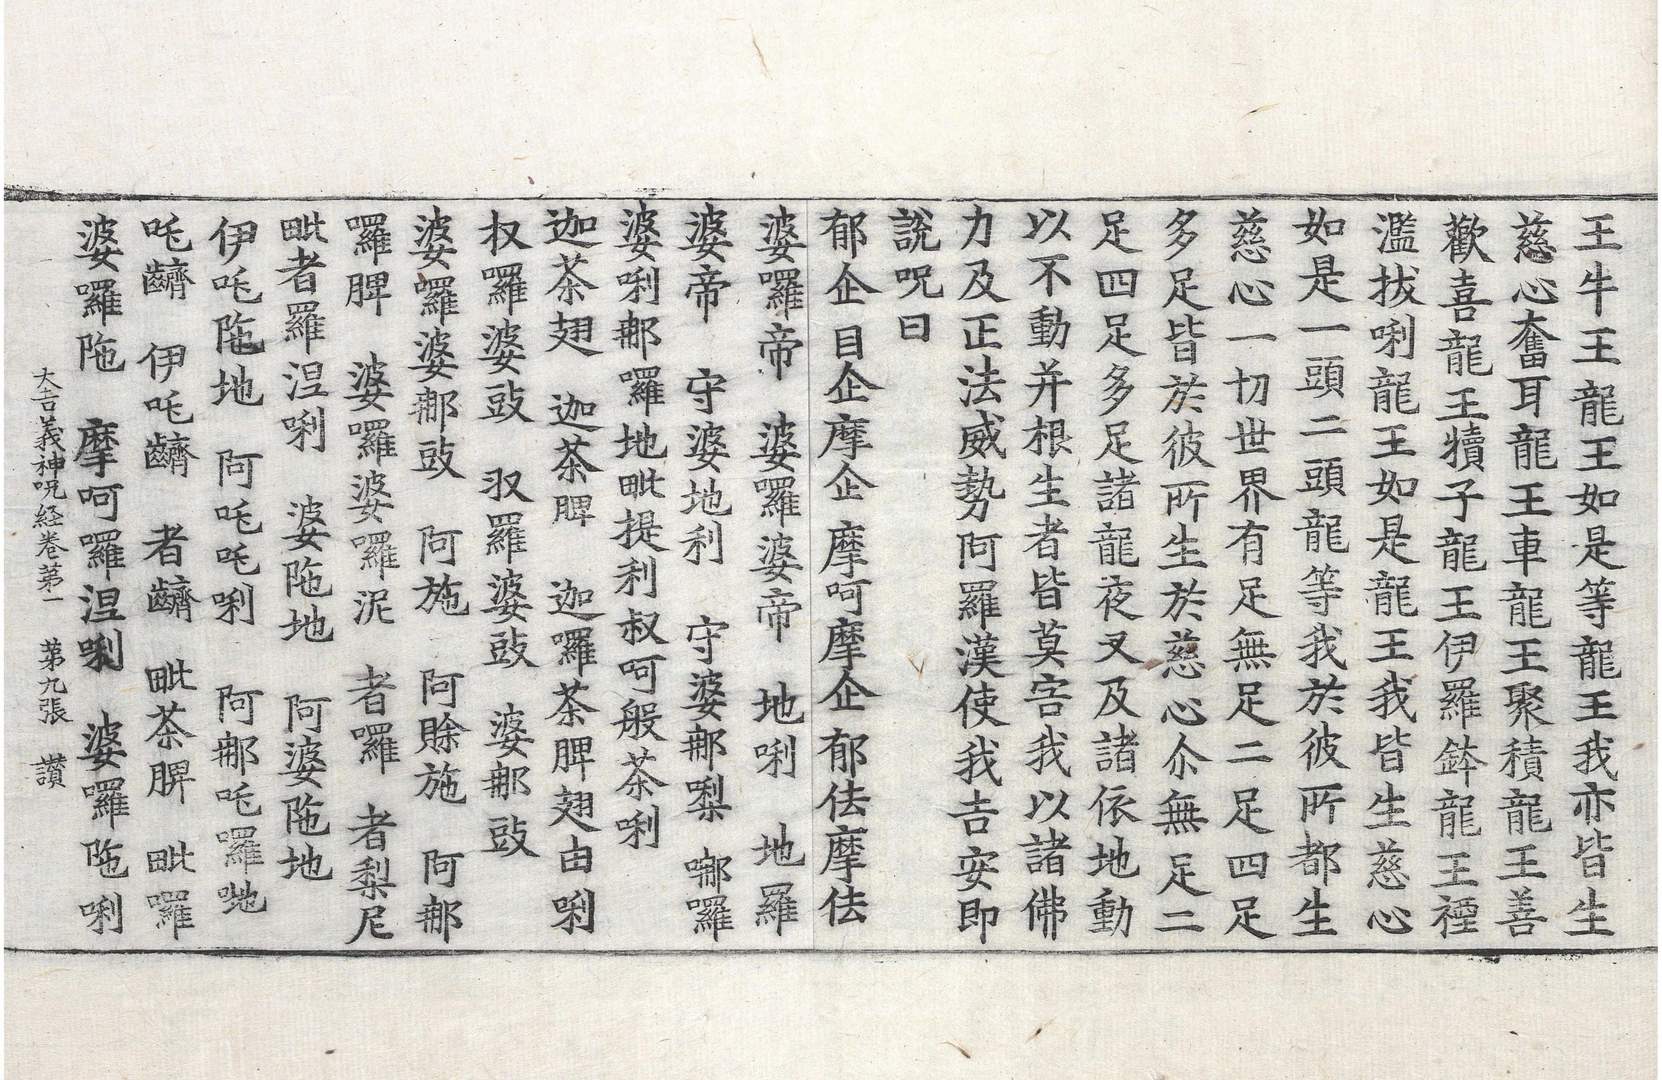 王牛王龍王如是等龍王我亦皆生
慈心奮耳龍王車龍王聚積龍王善
歡喜龍王犢子龍王伊羅鉢龍王禋
濫拔唎龍王如是龍王我皆生慈心
如是一頭二頭龍等我於彼所都生
慈心一切世界有足無足二足四足
多足皆於彼所生於慈心尒無足二
足四足多足諸龍夜叉及諸依地動
以不動并根生者皆莫害我以諸佛
力及正法威勢阿羅漢使我吉安即
說呪曰
郁企 目企摩企 摩呵摩企郁佉摩佉
婆囉帝 婆囉婆帝 地唎 地羅
婆帝 守婆地利 守婆郍梨 哪囉
婆唎郍囉地毗提利叔呵般茶唎
迦茶翅 迦茶脾 迦囉茶脾翅由唎
杈囉婆豉 𠬧羅婆豉 婆郍豉
婆囉婆郍豉 阿施 阿賒施 阿郍
囉脾 婆囉婆囉泥 者囉 者梨尼
毗者羅涅唎 婆陁地 阿婆陁地
伊吒陁地 阿吒吒唎 阿郍吒囉哋
吒齎 伊吒齎 者齎 毗茶脾 毗囉
婆囉陁 摩呵囉涅唎 婆囉陁唎
大吉義神呪経卷苐一 第九張 讃